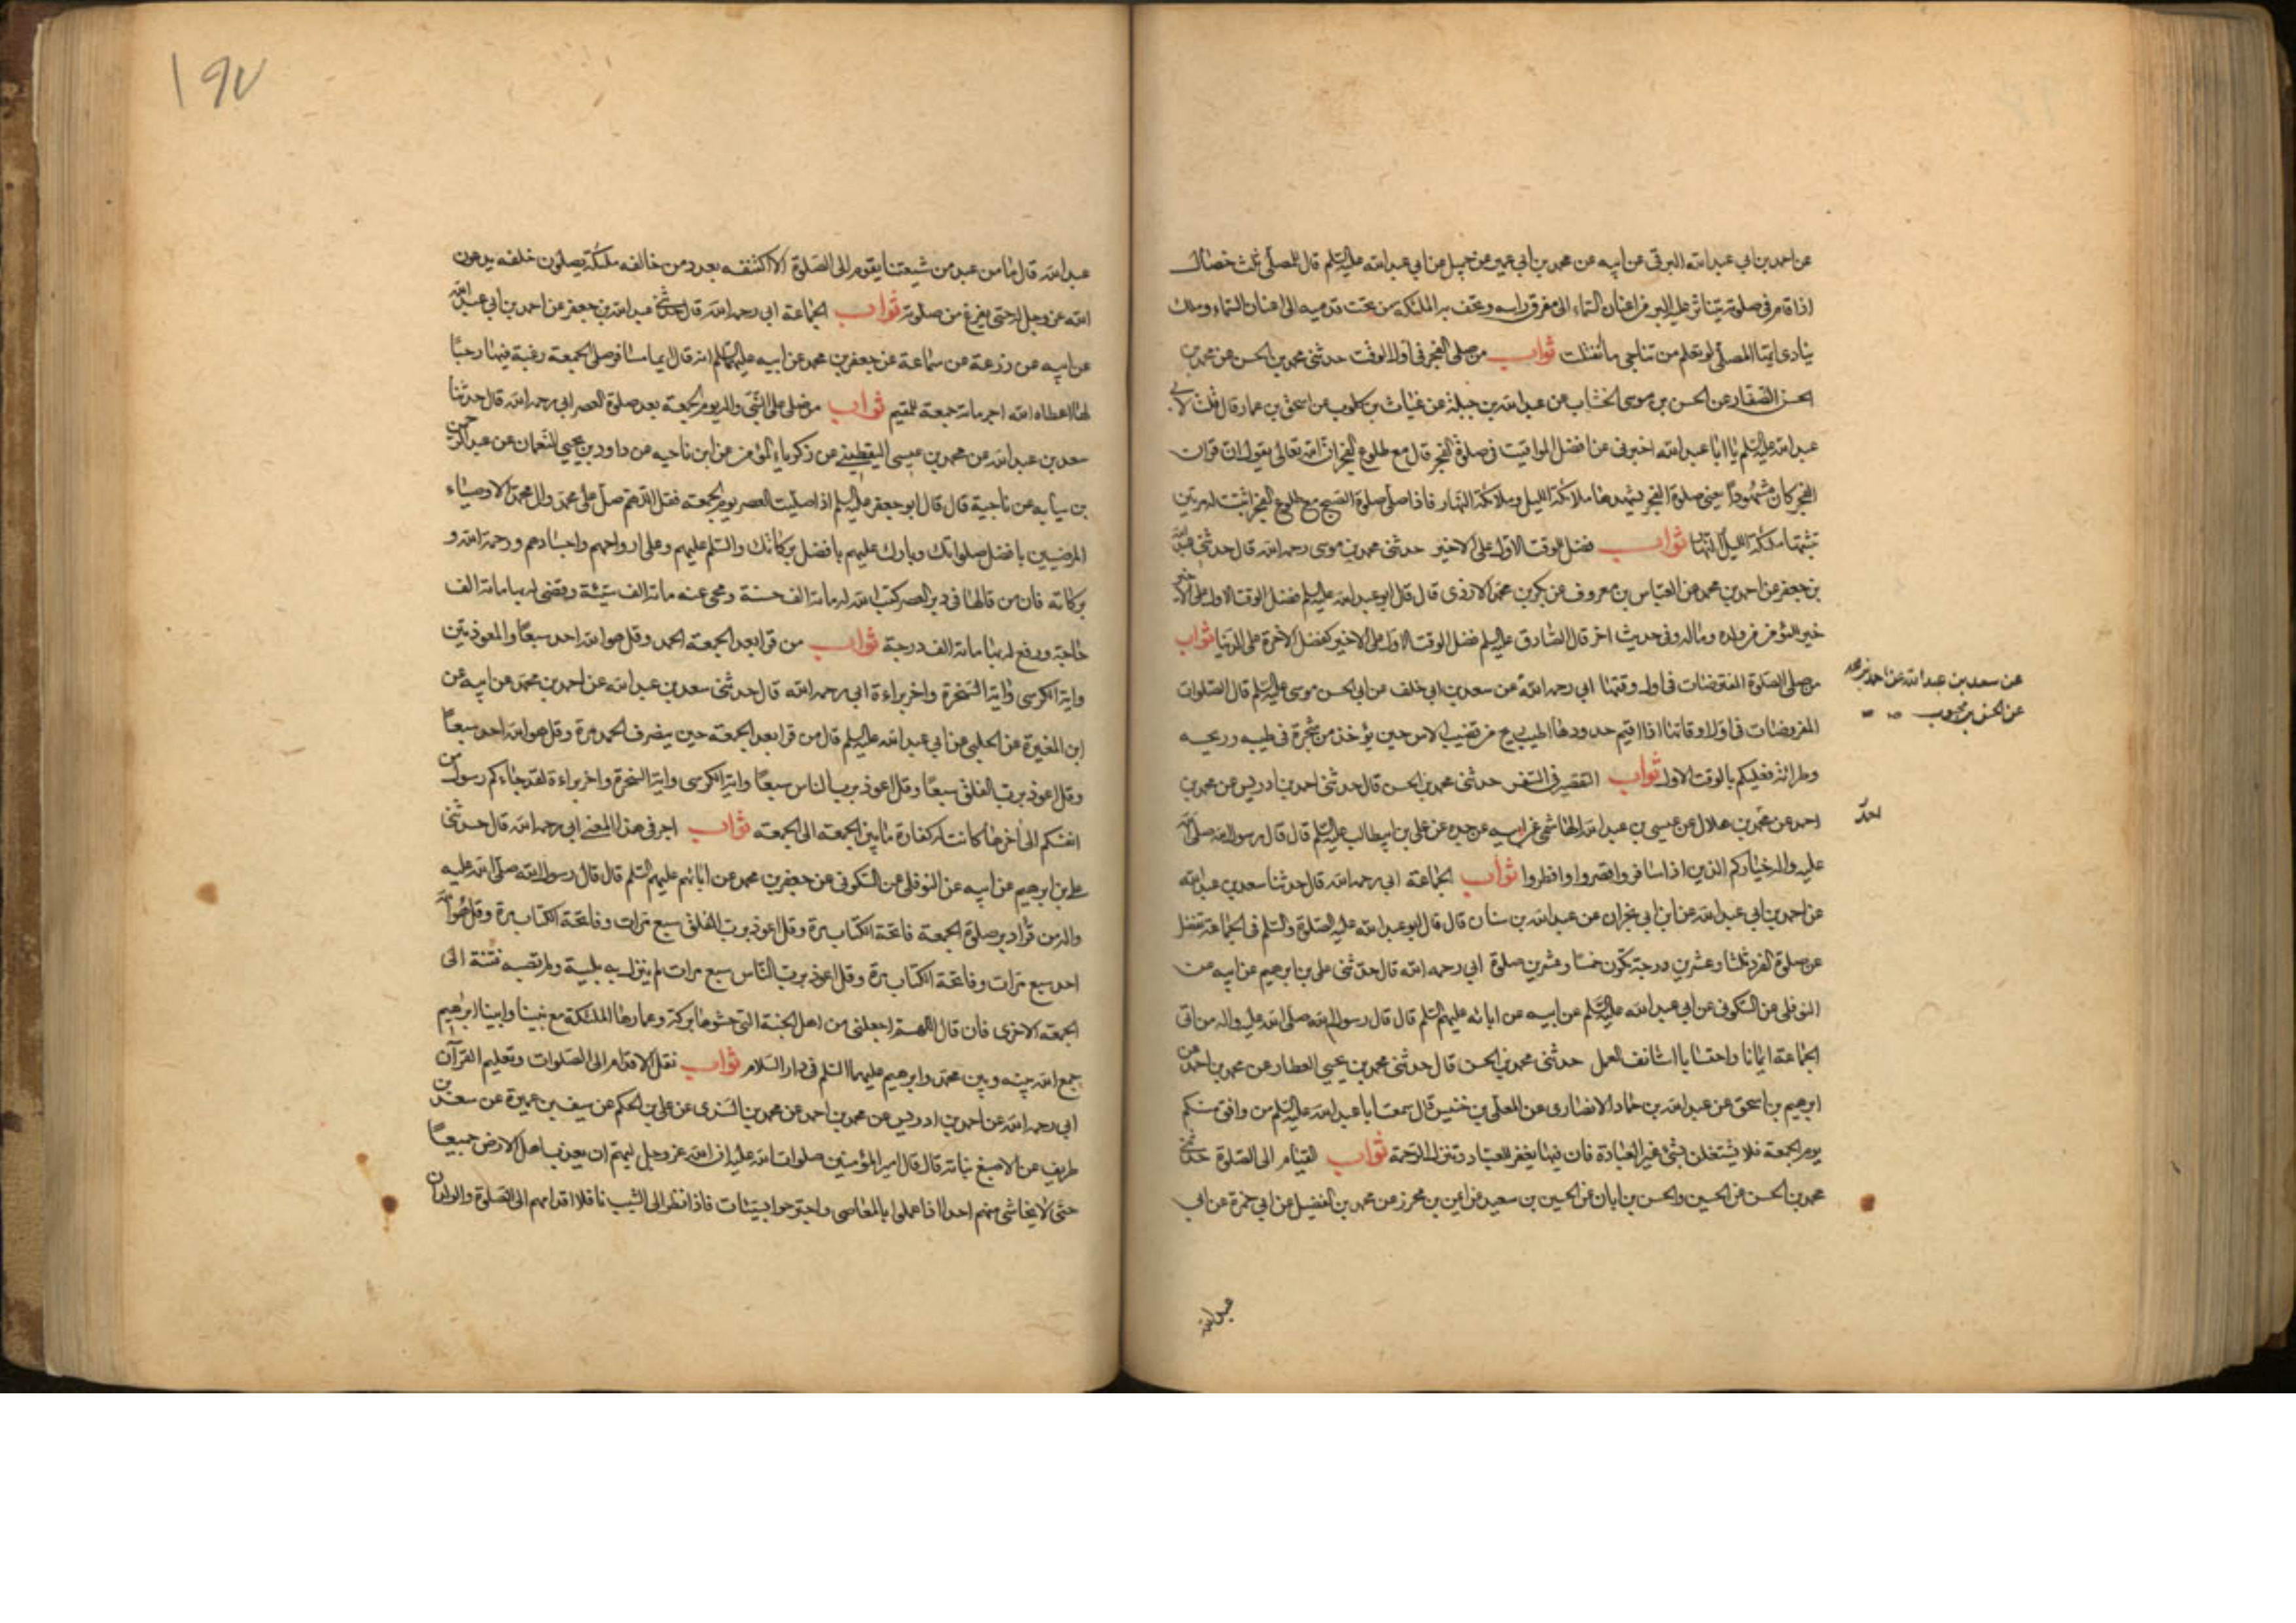 عن احمد بن ابي عبد الله البرقي عن ابيه عن محمد بن ابي عمير عن جميل عن ابي عبد الله عليه السلم قال للمصلى ثلث خصال
اذا قام في صلوته يتناثر عليه البر من اعنان السماء الى مفرق راسه وتحف به الملئكة من تحت قدميه الى اعنان السماء وملك
ينادى ايها المصلى لو تعلم من تناجى ما انفتلت ثواب من صلى الفجر في اول الوقت حدثنى محمد بن الحسن عن محمد بن
الحسن الصفار عن الحسن بن موسى الخشاب عن عبد الله بن جبلة عن غياث بن كلوب عن اسحق بن عمار قال قلت لابي
عبد الله عليه السلم يا ابا عبد الله اخبرنى عن افضل المواقيت في صلوة الفجر قال مع طلوع الفجر ان الله تعالى يقول ان قران
الفجر كان مشهودا يعنى صلوة الفجر يشهدها ملائكة الليل وملائكة النهار فاذا صلى صلوة الصبح مع طلوع الفجر اثبت له مرتين
تثبتها ملئكة الليل والنهار ثواب فضل الوقت الاول على الاخير حدثنى محمد بن موسى رحمه الله قال حدثنى عبد الله
بن جعفر عن احمد بن محمد عن العباس بن معروف عن بكر بن محمد الازدى قال قال ابو عبد الله عليه السلم فضل الوقت الاول على الاخير
خير للمؤمن من ولده وماله وفي حديث اخر قال الصادق عليه السلم فضل الوقت الاول على الاخير كفضل الاخرة على الدنيا ثواب
من صلى الصلوة المفترضات في اول وقتها ابي رحمه الله عن سعد بن ابي خلف عن ابي الحسن موسى عليه السلم قال الصلوات
عن سعد بن عبد الله عن احمد بن محمد
عن الحسن بن محبوب
المفروضات في اول اوقاتها اذا اقيم حدودها اطيب ريح من قضيب الاس حين يؤخذ من شجرة في طيبه وريحه
وطراته فعليكم بالوقت الاول ثواب التقصير في السفر حدثنى محمد بن الحسن قال حدثنى احمد بن ادريس عن محمد بن
احمد عن محمد بن هلال عن عيسى بن عبد الله الهاشمى عن ابيه عن جده عن على بن ابيطالب عليه السلم قال قال رسول الله صلى الله
عليه واله خياركم الذين اذا سافروا قصروا وافطروا ثواب الجماعة ابي رحمه الله قال حدثنا سعد بن عبد الله
عن احمد بن ابي عبد الله عن ابن ابي نجران عن عبد الله بن سنان قال قال ابو عبد الله عليه الصلوة والسلم في الجماعة تفضل
عن صلوة الفرد ثلثا وعشرين درجة تكون خمسا وعشرين صلوة ابي رحمه الله قال حدثنى على بن ابرهيم عن ابيه عن
النوفلى عن السكونى عن ابي عبد الله عليه السلم عن ابيه عن ابائه عليهم السلم قال قال رسول الله صلى الله عليه واله من اتى
الجماعة ايمانا واحتسابا استانف العمل حدثنى محمد بن الحسن قال حدثنى محمد بن يحيى العطار عن محمد بن احمد عن
ابرهيم بن اسحق عن عبد الله بن حماد الانصارى عن المعلى بن خنيس قال سمعت ابا عبد الله عليه السلم من وافق منكم
يوم الجمعة فلا يشتغلن بشئ غير العبادة فان فيها يغفر للعباد وتنزل الرحمة ثواب القيام الى الصلوة حدثنى
محمد بن الحسن عن الحسين والحسن بن ابان عن الحسين بن سعيد عن ايمن بن محرز عن محمد بن الفضيل عن ابي حمزة عن ابي
عبد الله
١٩٧
عبد الله قال ما من عبد من شيعتنا يقوم الى الصلوة الا اكتنفه بعدد من خالفه ملئكة يصلون خلفه يدعون
الله عز وجل له حتى يفرغ من صلوته ثواب الجماعة ابي رحمه الله قال حدثنى عبد الله بن جعفر عن احمد بن ابي عبد الله
عن ابيه عن زرعة عن سماعة عن جعفر بن محمد عن ابيه عليهما السلم انه قال ايما مسافر صلى الجمعة رغبة فيها وحبا
لها اعطاه الله اجر مائة جمعة للمقيم ثواب من صلى على النبى واله يوم الجمعة بعد صلوة العصر ابي رحمه الله قال حدثنا
سعد بن عبد الله عن محمد بن عيسى اليقطينى عن زكرياء المؤمن عن ابن ناجيه عن داود بن يحيى النعمان عن عبد الرحمن
بن سيابه عن ناجية قال قال ابو جعفر عليه السلم اذا صليت العصر يوم الجمعه فقل اللهم صل على محمد وال محمد الاوصياء
المرضيين بافضل صلواتك وبارك عليهم بافضل بركاتك والسلم عليهم وعلى ارواحهم واجسادهم ورحمة الله و
بركاته فان من قالها في دبر العصر كتب الله له مائة الف حسنة ومحى عنه مائة الف سيئة وقضى له بها مائة الف
حاجة ورفع له بها مائة الف درجة ثواب من قرا بعد الجمعة الحمد وقل هو الله احد سبعا والمعوذتين
واية الكرسى واية السخرة واخر براءة ابي رحمه الله قال حدثنى سعد بن عبد الله عن احمد بن محمد عن ابيه عن
ابن المغيرة عن الحلبى عن ابي عبد الله عليه السلم قال من قرا بعد الجمعة حين ينصرف الحمد مرة وقل هو الله احد سبعا
وقل اعوذ برب الفلق سبعا وقل اعوذ برب الناس سبعا واية الكرسى واية السخرة واخر براءة لقد جاءكم رسول من
انفسكم الى اخرها كانت له كفارة ما بين الجمعة الى الجمعة ثواب اجر في هذا المعنى ابي رحمه الله قال حدثنى
على بن ابرهيم عن ابيه عن النوفلى عن السكونى عن جعفر بن محمد عن ابائهم عليهم السلم قال قال رسول الله صلى الله عليه
واله من قرا دبر صلوة الجمعة فاتحة الكتاب مرة وقل اعوذ برب الفلق سبع مرات وفاتحة الكتاب مرة وقل هو الله
احد سبع مرات وفاتحة الكتاب مرة وقل اعوذ برب الناس سبع مرات لم ينزل به بلية ولم تصبه فتنة الى
الجمعة الاخرى فان قال اللهم اجعلنى من اهل الجنة التى حشوها بركة وعمارها الملئكة مع نبينا وابينا ابرهيم
جمع الله بينه وبين محمد وابرهيم عليهما السلم في دار السلام ثواب نقل الاقدام الى الصلوات وتعليم القرآن
ابي رحمه الله عن احمد بن ادريس عن محمد بن احمد عن محمد بن السندى عن على بن الحكم عن سيف بن عميرة عن سعد بن
طريف عن الاصبغ نباتة قال قال امير المؤمنين صلوات الله عليه ان الله عز وجل ليهم ان يعذب اهل الارض جميعا
حتى لا يحاشى منهم احدا اذا عملوا بالمعاصى واجترحوا السيئات فاذا نظر الى الشيب ناقلا اقدامهم الى الصلوة والولدان